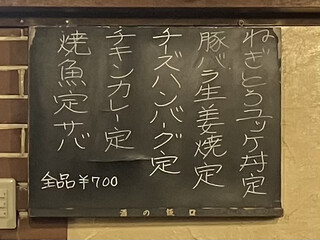 ねぎとろユッケ丼定
豚バラ生姜焼定
チーズハンバーグ定
チキンカレー定
焼魚定サバ
全品¥700
酒の阪口